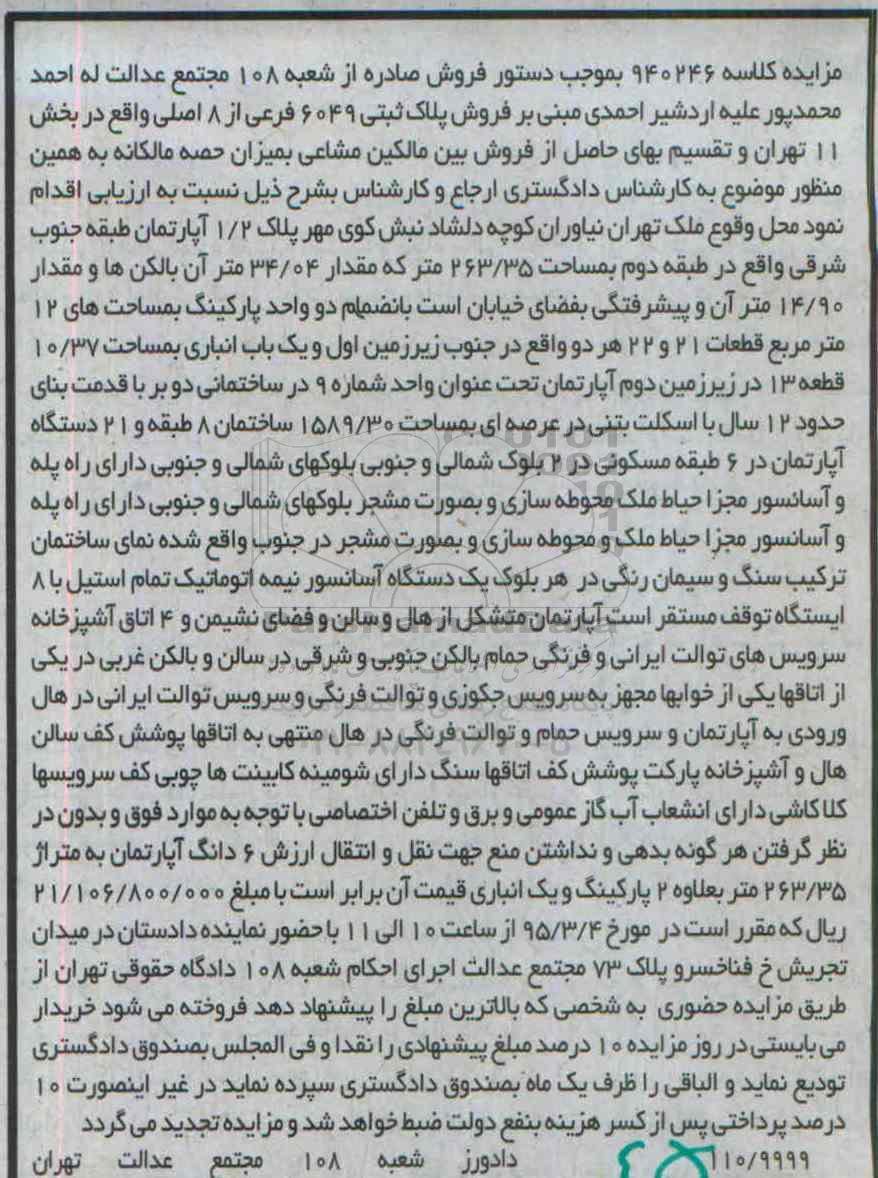 مزایده کلاسه ۹۴۰۲۴۶ بموجب دستور فروش صادره از شعبه ۱۰۸ مجتمع عدالت له احمد
محمدپور علیه اردشیر احمدی مبنی بر فروش پلاک ثبتی ۶۰۴۹ فرعی از ۸ اصلی واقع در بخش
۱۱ تهران و تقسیم بهای حاصل از فروش بین مالکین مشاعی بمیزان حصه مالکانه به همین
منظور موضوع به کارشناس دادگستری ارجاع و کارشناس بشرح ذیل نسبت به ارزیابی اقدام
نمود محل وقوع ملک تهران نیاوران کوچه دلشاد نبش کوی مهر پلاک ۱/۲ آپارتمان طبقه جنوب
شرقی واقع در طبقه دوم بمساحت ۲۶۳/۳۵ متر که مقدار ۳۴/۰۴ متر آن بالکن ها و مقدار
۱۴/۹۰ متر آن و پیشرفتگی بفضای خیابان است بانضمام دو واحد پارکینگ بمساحت های ۱۲
متر مربع قطعات ۲۱ و ۲۲ هر دو واقع در جنوب زیرزمین اول و یک باب انباری بمساحت ۱۰/۳۷
قطعه ۱۳ در زیرزمین دوم آپارتمان تحت عنوان واحد شماره ۹ در ساختمانی دو بر با قدمت بنای
حدود ۱۲ سال با اسکلت بتنی در عرصه ای بمساحت ۱۵۸۹/۳۰ ساختمان ۸ طبقه و ۲۱ دستگاه
آپارتمان در ۶ طبقه مسکونی در ۲ بلوک شمالی و جنوبی بلوکهای شمالی و جنوبی دارای راه پله
و آسانسور مجزا حیاط ملک محوطه سازی و بصورت مشجر بلوکهای شمالی و جنوبی دارای راه پله
و آسانسور مجزا حیاط ملک و محوطه سازی و بصورت مشجر در جنوب واقع شده نمای ساختمان
ترکیب سنگ و سیمان رنگی در هر بلوک یک دستگاه آسانسور نیمه اتوماتیک تمام استیل با ۸
ایستگاه توقف مستقر است آپارتمان متشکل از هال و سالن و فضای نشیمن و ۴ اتاق آشپزخانه
سرویس های توالت ایرانی و فرنگی حمام بالکن جنوبی و شرقی در سالن و بالکن غربی در یکی
از اتاقها یکی از خوابها مجهز به سرویس جکوزی و توالت فرنگی و سرویس توالت ایرانی در هال
ورودی به آپارتمان و سرویس حمام و توالت فرنگی در هال منتهی به اتاقها پوشش کف سالن
هال و آشپزخانه پارکت پوشش کف اتاقها سنگ دارای شومینه کابینت ها چوبی کف سرویسها
کلا کاشی دارای انشعاب آب گاز عمومی و برق و تلفن اختصاصی با توجه به موارد فوق و بدون در
نظر گرفتن هر گونه بدهی و نداشتن منع جهت نقل و انتقال ارزش ۶ دانگ آپارتمان به متراژ
۲۶۳/۳۵ متر بعلاوه ۲ پارکینگ و یک انباری قیمت آن برابر است با مبلغ ۲۱/۱۰۶/۸۰۰/۰۰۰
ریال که مقرر است در مورخ ۹۵/۳/۴ از ساعت ۱۰ الی ۱۱ با حضور نماینده دادستان در میدان
تجریش خ فناخسرو پلاک ۷۳ مجتمع عدالت اجرای احکام شعبه ۱۰۸ دادگاه حقوقی تهران از
طریق مزایده حضوری به شخصی که بالاترین مبلغ را پیشنهاد دهد فروخته می شود خریدار
می بایستی در روز مزایده ۱۰ درصد مبلغ پیشنهادی را نقدا و فی المجلس بصندوق دادگستری
تودیع نماید و الباقی را ظرف یک ماه بصندوق دادگستری سپرده نماید در غیر اینصورت ۱۰
درصد پرداختی پس از کسر هزینه بنفع دولت ضبط خواهد شد و مزایده تجدید می گردد
۱۱۰/۹۹۹۹ دادورز شعبه ۱۰۸ مجتمع عدالت تهران